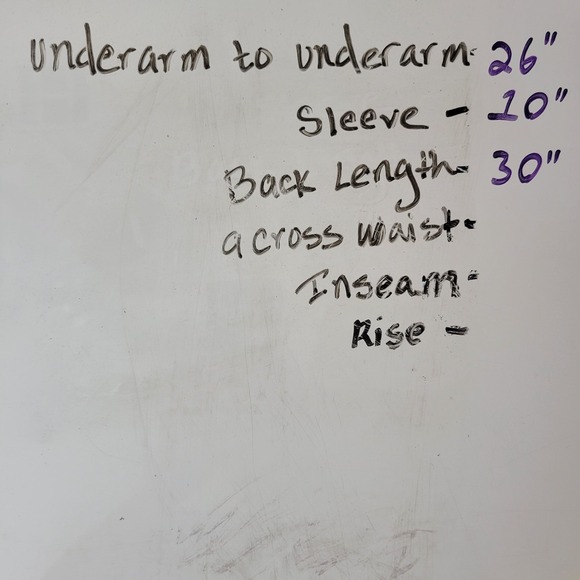 underarm to underarm- 26"
Sleeve - 10"
Back Length- 30"
across waist-
Inseam-
Rise -